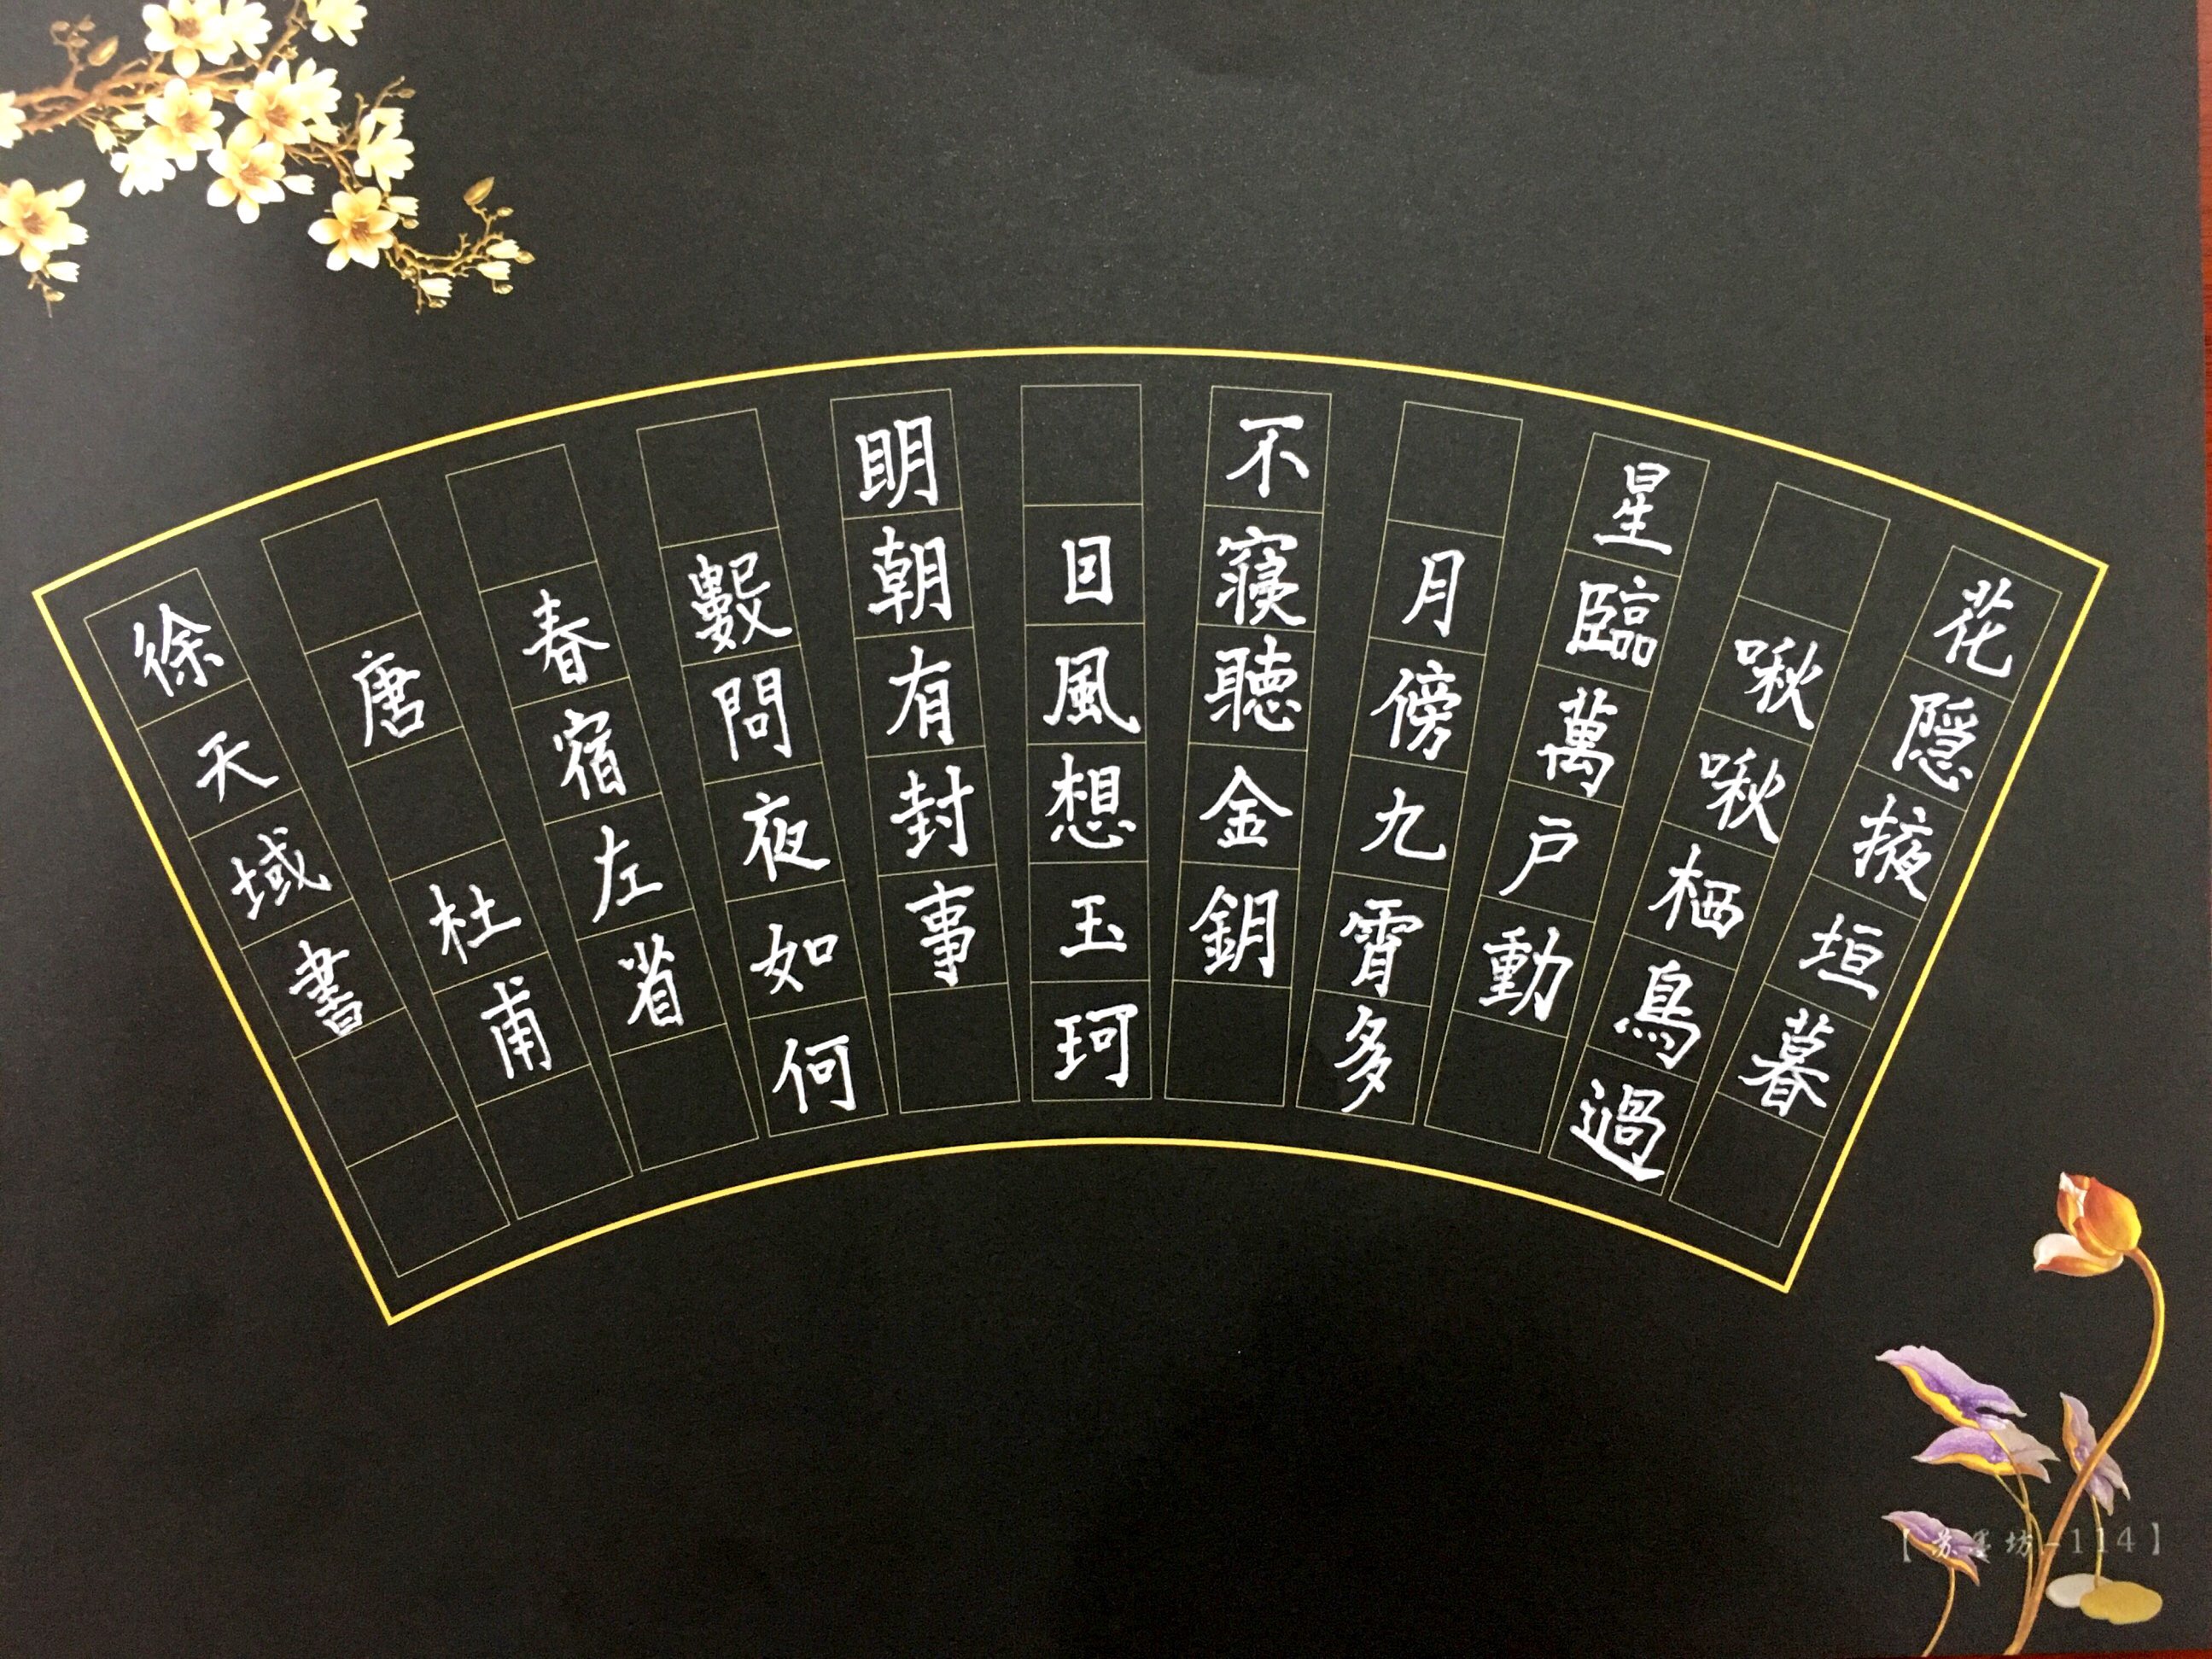 花隱掖垣暮
啾啾栖鳥過
星臨萬戶動
月傍九霄多
不寢聽金鑰
日風想玉珂
明朝有封事
數問夜如何
春宿左省
唐 杜甫
徐天域書
【苏墨坊-114】